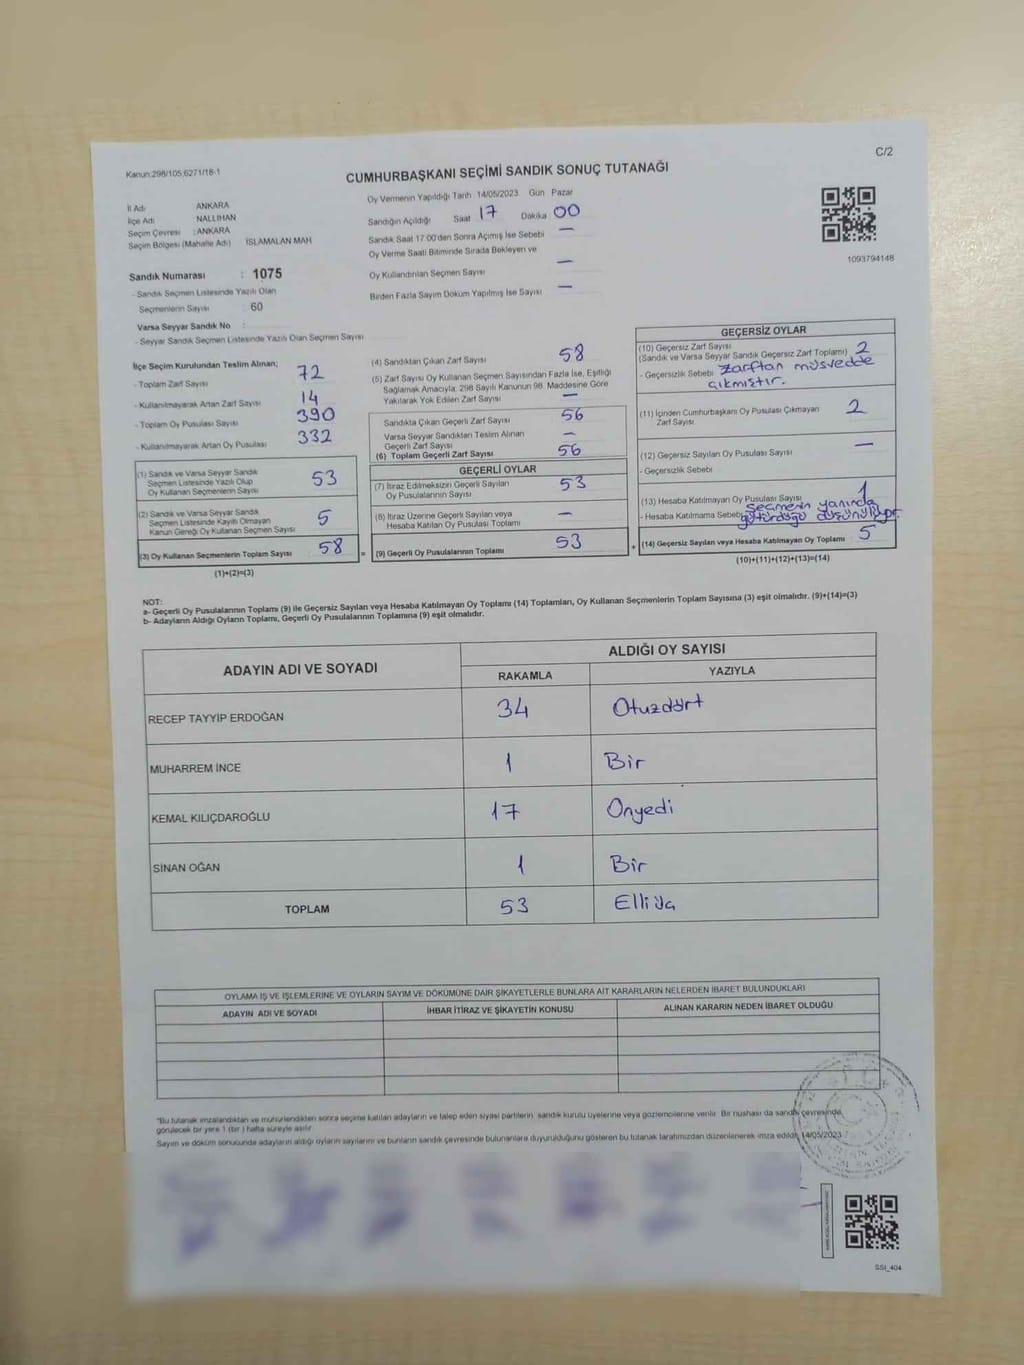 C/2
Kanun:298/105,6271/18-1
CUMHURBAŞKANI SEÇİMİ SANDIK SONUÇ TUTANAĞI
İl Adı ANKARA
İlçe Adı NALLIHAN
Seçim Çevresi : ANKARA
Seçim Bölgesi (Mahalle Adı) İSLAMALAN MAH
Sandık Numarası : 1075
- Sandık Seçmen Listesinde Yazılı Olan
Seçmenlerin Sayısı : 60
Varsa Seyyar Sandık No :
- Seyyar Sandık Seçmen Listesinde Yazılı Olan Seçmen Sayısı
Oy Vermenin Yapıldığı Tarih 14/05/2023 Gün Pazar
Sandığın Açıldığı Saat 17 Dakika 00
Sandık Saat 17:00'den Sonra Açılmış İse Sebebi —
Oy Verme Saati Bitiminde Sırada Bekleyen ve
Oy Kullandırılan Seçmen Sayısı —
Birden Fazla Sayım Döküm Yapılmış İse Sayısı —
1093794148
İlçe Seçim Kurulundan Teslim Alınan;
- Toplam Zarf Sayısı 72
- Kullanılmayarak Artan Zarf Sayısı 14
- Toplam Oy Pusulası Sayısı 390
- Kullanılmayarak Artan Oy Pusulası 332
(1) Sandık ve Varsa Seyyar Sandık
Seçmen Listesinde Yazılı Olup
Oy Kullanan Seçmenlerin Sayısı 53
(2) Sandık ve Varsa Seyyar Sandık
Seçmen Listesinde Kayıtlı Olmayan
Kanun Gereği Oy Kullanan Seçmen Sayısı 5
(3) Oy Kullanan Seçmenlerin Toplam Sayısı 58
(1)+(2)=(3)
(4) Sandıktan Çıkan Zarf Sayısı 58
(5) Zarf Sayısı Oy Kullanan Seçmen Sayısından Fazla İse, Eşitliği
Sağlamak Amacıyla; 298 Sayılı Kanunun 98. Maddesine Göre
Yakılarak Yok Edilen Zarf Sayısı —
Sandıkta Çıkan Geçerli Zarf Sayısı 56
Varsa Seyyar Sandıktan Teslim Alınan
Geçerli Zarf Sayısı —
(6) Toplam Geçerli Zarf Sayısı 56
GEÇERLİ OYLAR
(7) İtiraz Edilmeksizin Geçerli Sayılan
Oy Pusulalarının Sayısı 53
(8) İtiraz Üzerine Geçerli Sayılan veya
Hesaba Katılan Oy Pusulası Toplamı —
= (9) Geçerli Oy Pusulalarının Toplamı 53
GEÇERSİZ OYLAR
(10) Geçersiz Zarf Sayısı
(Sandık ve Varsa Seyyar Sandık Geçersiz Zarf Toplamı) 2
- Geçersizlik Sebebi Zarftan müsvedde
çıkmıştır.
(11) İçinden Cumhurbaşkanı Oy Pusulası Çıkmayan
Zarf Sayısı 2
(12) Geçersiz Sayılan Oy Pusulası Sayısı —
- Geçersizlik Sebebi
(13) Hesaba Katılmayan Oy Pusulası Sayısı 1
- Hesaba Katılmama Sebebi seçmenin yanında
götürdüğü düşünülüyor.
+ (14) Geçersiz Sayılan veya Hesaba Katılmayan Oy Toplamı 5
(10)+(11)+(12)+(13)=(14)
NOT:
a- Geçerli Oy Pusulalarının Toplamı (9) ile Geçersiz Sayılan veya Hesaba Katılmayan Oy Toplamı (14) Toplamları, Oy Kullanan Seçmenlerin Toplam Sayısına (3) eşit olmalıdır. (9)+(14)=(3)
b- Adayların Aldığı Oyların Toplamı, Geçerli Oy Pusulalarının Toplamına (9) eşit olmalıdır.
ADAYIN ADI VE SOYADI ALDIĞI OY SAYISI
RAKAMLA YAZIYLA
RECEP TAYYİP ERDOĞAN 34 Otuzdört
MUHARREM İNCE 1 Bir
KEMAL KILIÇDAROĞLU 17 Onyedi
SİNAN OĞAN 1 Bir
TOPLAM 53
OYLAMA İŞ VE İŞLEMLERİNE VE OYLARIN SAYIM VE DÖKÜMÜNE DAİR ŞİKAYETLERLE BUNLARA AİT KARARLARIN NELERDEN İBARET BULUNDUKLARI
ADAYIN ADI VE SOYADI İHBAR İTİRAZ VE ŞİKAYETİN KONUSU ALINAN KARARIN NEDEN İBARET OLDUĞU
"Bu tutanak imzalandıktan ve mühürlendikten sonra seçime katılan adayların ve talep eden siyasi partilerin sandık kurulu üyelerine veya gözlemcilerine verilir. Bir nushası da sandık çevresinde,
görülecek bir yere 1 (bir) hafta süreyle asılır
Sayım ve döküm sonucunda adayların aldığı oyların sayılarını ve bunların sandık çevresinde bulunanlara duyurulduğunu gösteren bu tutanak tarafımızdan düzenlenerek imza edildi. 14/05/2023
SSI_404